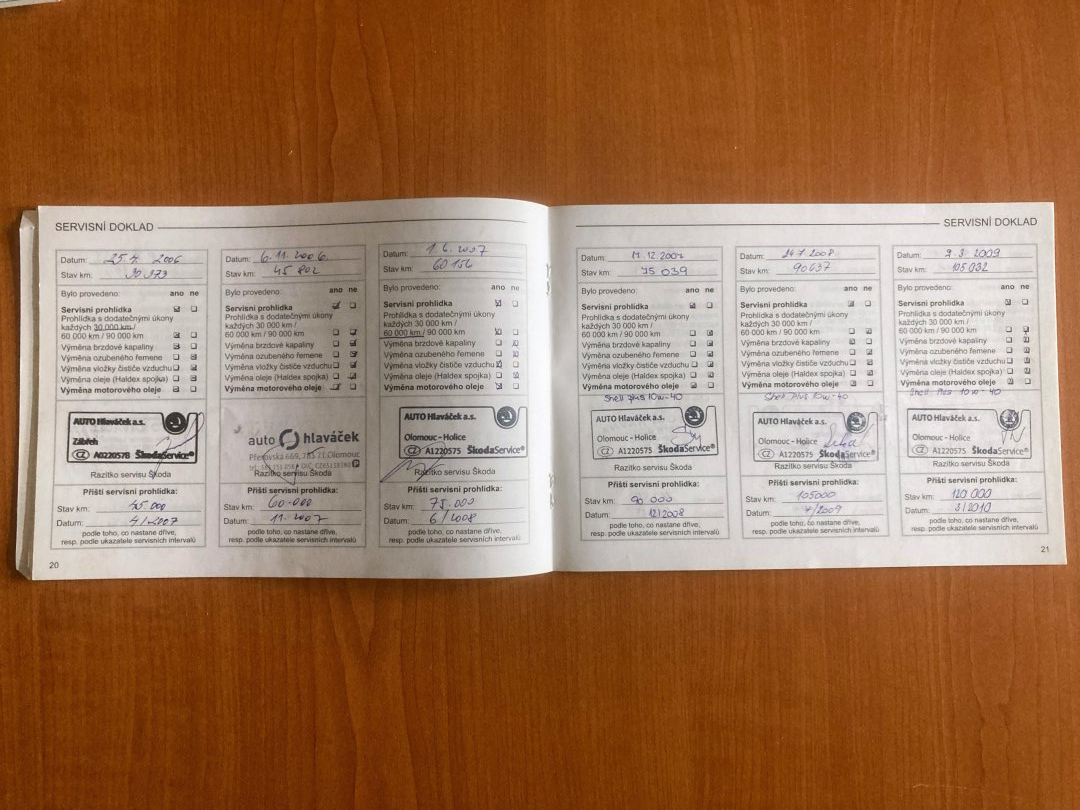 SERVISNÍ DOKLAD
Datum: 25. 4. 2006
Stav km: 30 373
Bylo provedeno: ano ne
Servisní prohlídka
Prohlídka s dodatečnými úkony
každých 30 000 km /
60 000 km / 90 000 km
Výměna brzdové kapaliny
Výměna ozubeného řemene
Výměna vložky čističe vzduchu
Výměna oleje (Haldex spojka)
Výměna motorového oleje
AUTO Hlaváček a.s.
Zábřeh
CZ A022057B ŠkodaService®
Razítko servisu Škoda
Příští servisní prohlídka:
Stav km: 45 000
Datum: 4/2007
podle toho, co nastane dříve,
resp. podle ukazatele servisních intervalů
20
Datum: 6. 11. 2006
Stav km: 45 802
Bylo provedeno: ano ne
Servisní prohlídka
Prohlídka s dodatečnými úkony
každých 30 000 km /
60 000 km / 90 000 km
Výměna brzdové kapaliny
Výměna ozubeného řemene
Výměna vložky čističe vzduchu
Výměna oleje (Haldex spojka)
Výměna motorového oleje
auto hlaváček
Přerovská 669, 783 71 Olomouc
Razítko servisu Škoda
Příští servisní prohlídka:
Stav km: 60.000
Datum: 11. 2007
podle toho, co nastane dříve,
resp. podle ukazatele servisních intervalů
Datum: 1. 6. 2007
Stav km: 60 156
Bylo provedeno: ano ne
Servisní prohlídka
Prohlídka s dodatečnými úkony
každých 30 000 km /
60 000 km / 90 000 km
Výměna brzdové kapaliny
Výměna ozubeného řemene
Výměna vložky čističe vzduchu
Výměna oleje (Haldex spojka)
Výměna motorového oleje
AUTO Hlaváček a.s.
Olomouc - Holice
CZ A1220575 ŠkodaService®
Razítko servisu Škoda
Příští servisní prohlídka:
Stav km: 75.000
Datum: 6/2008
podle toho, co nastane dříve,
resp. podle ukazatele servisních intervalů
SERVISNÍ DOKLAD
Datum: 11. 12. 2007
Stav km: 75 039
Bylo provedeno: ano ne
Servisní prohlídka
Prohlídka s dodatečnými úkony
každých 30 000 km /
60 000 km / 90 000 km
Výměna brzdové kapaliny
Výměna ozubeného řemene
Výměna vložky čističe vzduchu
Výměna oleje (Haldex spojka)
Výměna motorového oleje
Shell plus 10w-40
AUTO Hlaváček a.s.
Olomouc - Holice
CZ A1220575 ŠkodaService®
Razítko servisu Škoda
Příští servisní prohlídka:
Stav km: 90 000
Datum: 12/2008
podle toho, co nastane dříve,
resp. podle ukazatele servisních intervalů
Datum: 24 7. 2008
Stav km: 90637
Bylo provedeno: ano ne
Servisní prohlídka
Prohlídka s dodatečnými úkony
každých 30 000 km /
60 000 km / 90 000 km
Výměna brzdové kapaliny
Výměna ozubeného řemene
Výměna vložky čističe vzduchu
Výměna oleje (Haldex spojka)
Výměna motorového oleje
Shell Plus 10w-40
AUTO Hlaváček a.s.
Olomouc - Holice
CZ A1220575 ŠkodaService®
Razítko servisu Škoda
Příští servisní prohlídka:
Stav km: 105000
Datum: 7/2009
podle toho, co nastane dříve,
resp. podle ukazatele servisních intervalů
Datum: 9. 3. 2009
Stav km: 105 032
Bylo provedeno: ano ne
Servisní prohlídka
Prohlídka s dodatečnými úkony
každých 30 000 km /
60 000 km / 90 000 km
Výměna brzdové kapaliny
Výměna ozubeného řemene
Výměna vložky čističe vzduchu
Výměna oleje (Haldex spojka)
Výměna motorového oleje
Shell Plus 10w-40
AUTO Hlaváček a.s.
Olomouc - Holice
CZ A1220575 ŠkodaService®
Razítko servisu Škoda
Příští servisní prohlídka:
Stav km: 120 000
Datum: 3/2010
podle toho, co nastane dříve,
resp. podle ukazatele servisních intervalů
21